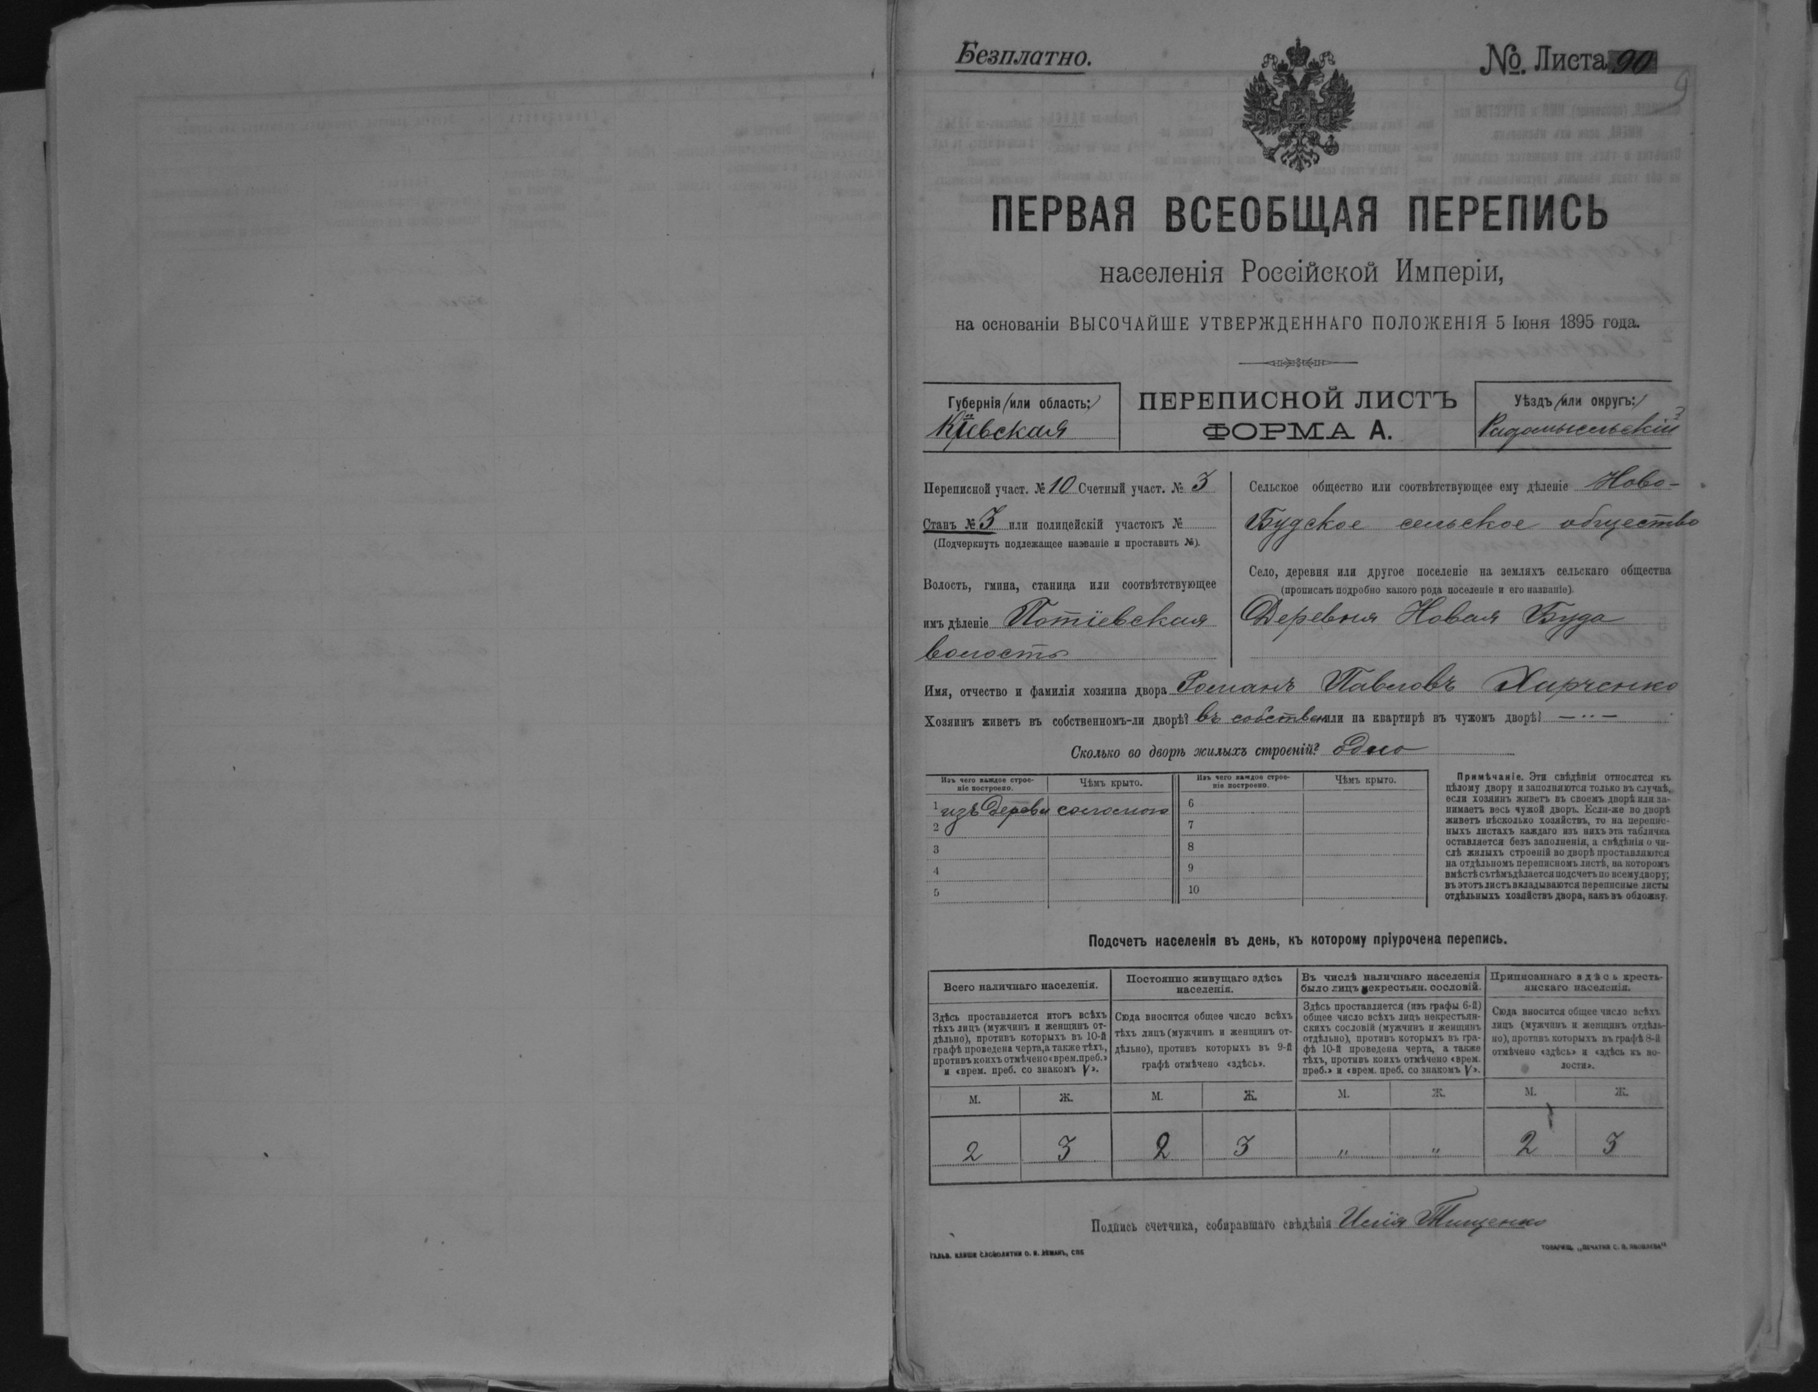 Безплатно.
№. Листа 90
9
ПЕРВАЯ ВСЕОБЩАЯ ПЕРЕПИСЬ
населенія Россійской Имперіи,
на основаніи ВЫСОЧАЙШЕ УТВЕРЖДЕННАГО ПОЛОЖЕНІЯ 5 Іюня 1895 года.
Губернія (или область:)
Кіевская
ПЕРЕПИСНОЙ ЛИСТЪ
ФОРМА А.
Уѣздъ (или округъ:)
Радомысльскій
Переписной участ. № 10 Счетный участ. № 3
Станъ № 3 или полицейскій участокъ №
(Подчеркнуть подлежащее названіе и проставить №).
Волость, гмина, станица или соотвѣтствующее
имъ дѣленіе Потіевская
волость
Сельское общество или соотвѣтствующее ему дѣленіе Ново-
Будское сельское общество
Село, деревня или другое поселеніе на земляхъ сельскаго общества
(прописать подробно какого рода поселеніе и его названіе)
Деревня Новая Буда
Имя, отчество и фамилія хозяина двора Романъ Павловъ Харченко
Хозяинъ живетъ въ собственномъ-ли дворѣ? въ собствен или на квартирѣ въ чужомъ дворѣ? — „ —
Сколько во дворѣ жилыхъ строеній? одно
Изъ чего каждое строе-
ніе построено.
Чѣмъ крыто.
1 изъ дерева соломою
2
3
4
5
Изъ чего каждое строе-
ніе построено.
Чѣмъ крыто.
6
7
8
9
10
Примѣчаніе. Эти свѣдѣнія относятся къ
цѣлому двору и заполняются только въ случаѣ,
если хозяинъ живетъ въ своемъ дворѣ или за-
нимаетъ весь чужой дворъ. Если-же во дворѣ
живетъ нѣсколько хозяйствъ, то на перепис-
ныхъ листахъ каждаго изъ нихъ эта табличка
оставляется безъ заполненія, а свѣдѣнія о чи-
слѣ жилыхъ строеній во дворѣ проставляются
на отдѣльномъ переписномъ листѣ, на которомъ
вмѣстѣ съ тѣмъ дѣлается подсчетъ по всему двору;
въ этотъ листъ вкладываются переписные листы
отдѣльныхъ хозяйствъ двора, какъ въ обложку.
Подсчетъ населенія въ день, къ которому пріурочена перепись.
Всего наличнаго населенія.
Здѣсь проставляется итогъ всѣхъ
тѣхъ лицъ (мужчинъ и женщинъ от-
дѣльно), противъ которыхъ въ 10-й
графѣ проведена черта, а также тѣхъ,
противъ коихъ отмѣчено «врем. преб.»
и «врем. преб. со знакомъ V».
М. Ж.
2 3
Постоянно живущаго здѣсь
населенія.
Сюда вносится общее число всѣхъ
тѣхъ лицъ (мужчинъ и женщинъ от-
дѣльно), противъ которыхъ въ 9-й
графѣ отмѣчено «здѣсь».
М. Ж.
2 3
Въ числѣ наличнаго населенія
было лицъ некрестьян. сословій.
Здѣсь проставляется (изъ графы 6-й)
общее число всѣхъ лицъ некрестьян-
скихъ сословій (мужчинъ и женщинъ
отдѣльно), противъ которыхъ въ гра-
фѣ 10-й проведена черта, а также
тѣхъ, противъ коихъ отмѣчено «врем.
преб.» и «врем. преб. со знакомъ V».
М. Ж.
„ „
Приписаннаго здѣсь кресть-
янскаго населенія.
Сюда вносится общее число всѣхъ
лицъ (мужчинъ и женщинъ отдѣль-
но), противъ которыхъ въ графѣ 8-й
отмѣчено «здѣсь» и «здѣсь къ во-
лости».
М. Ж.
2 3
Подпись счетчика, собиравшаго свѣдѣнія Илія Тищенко